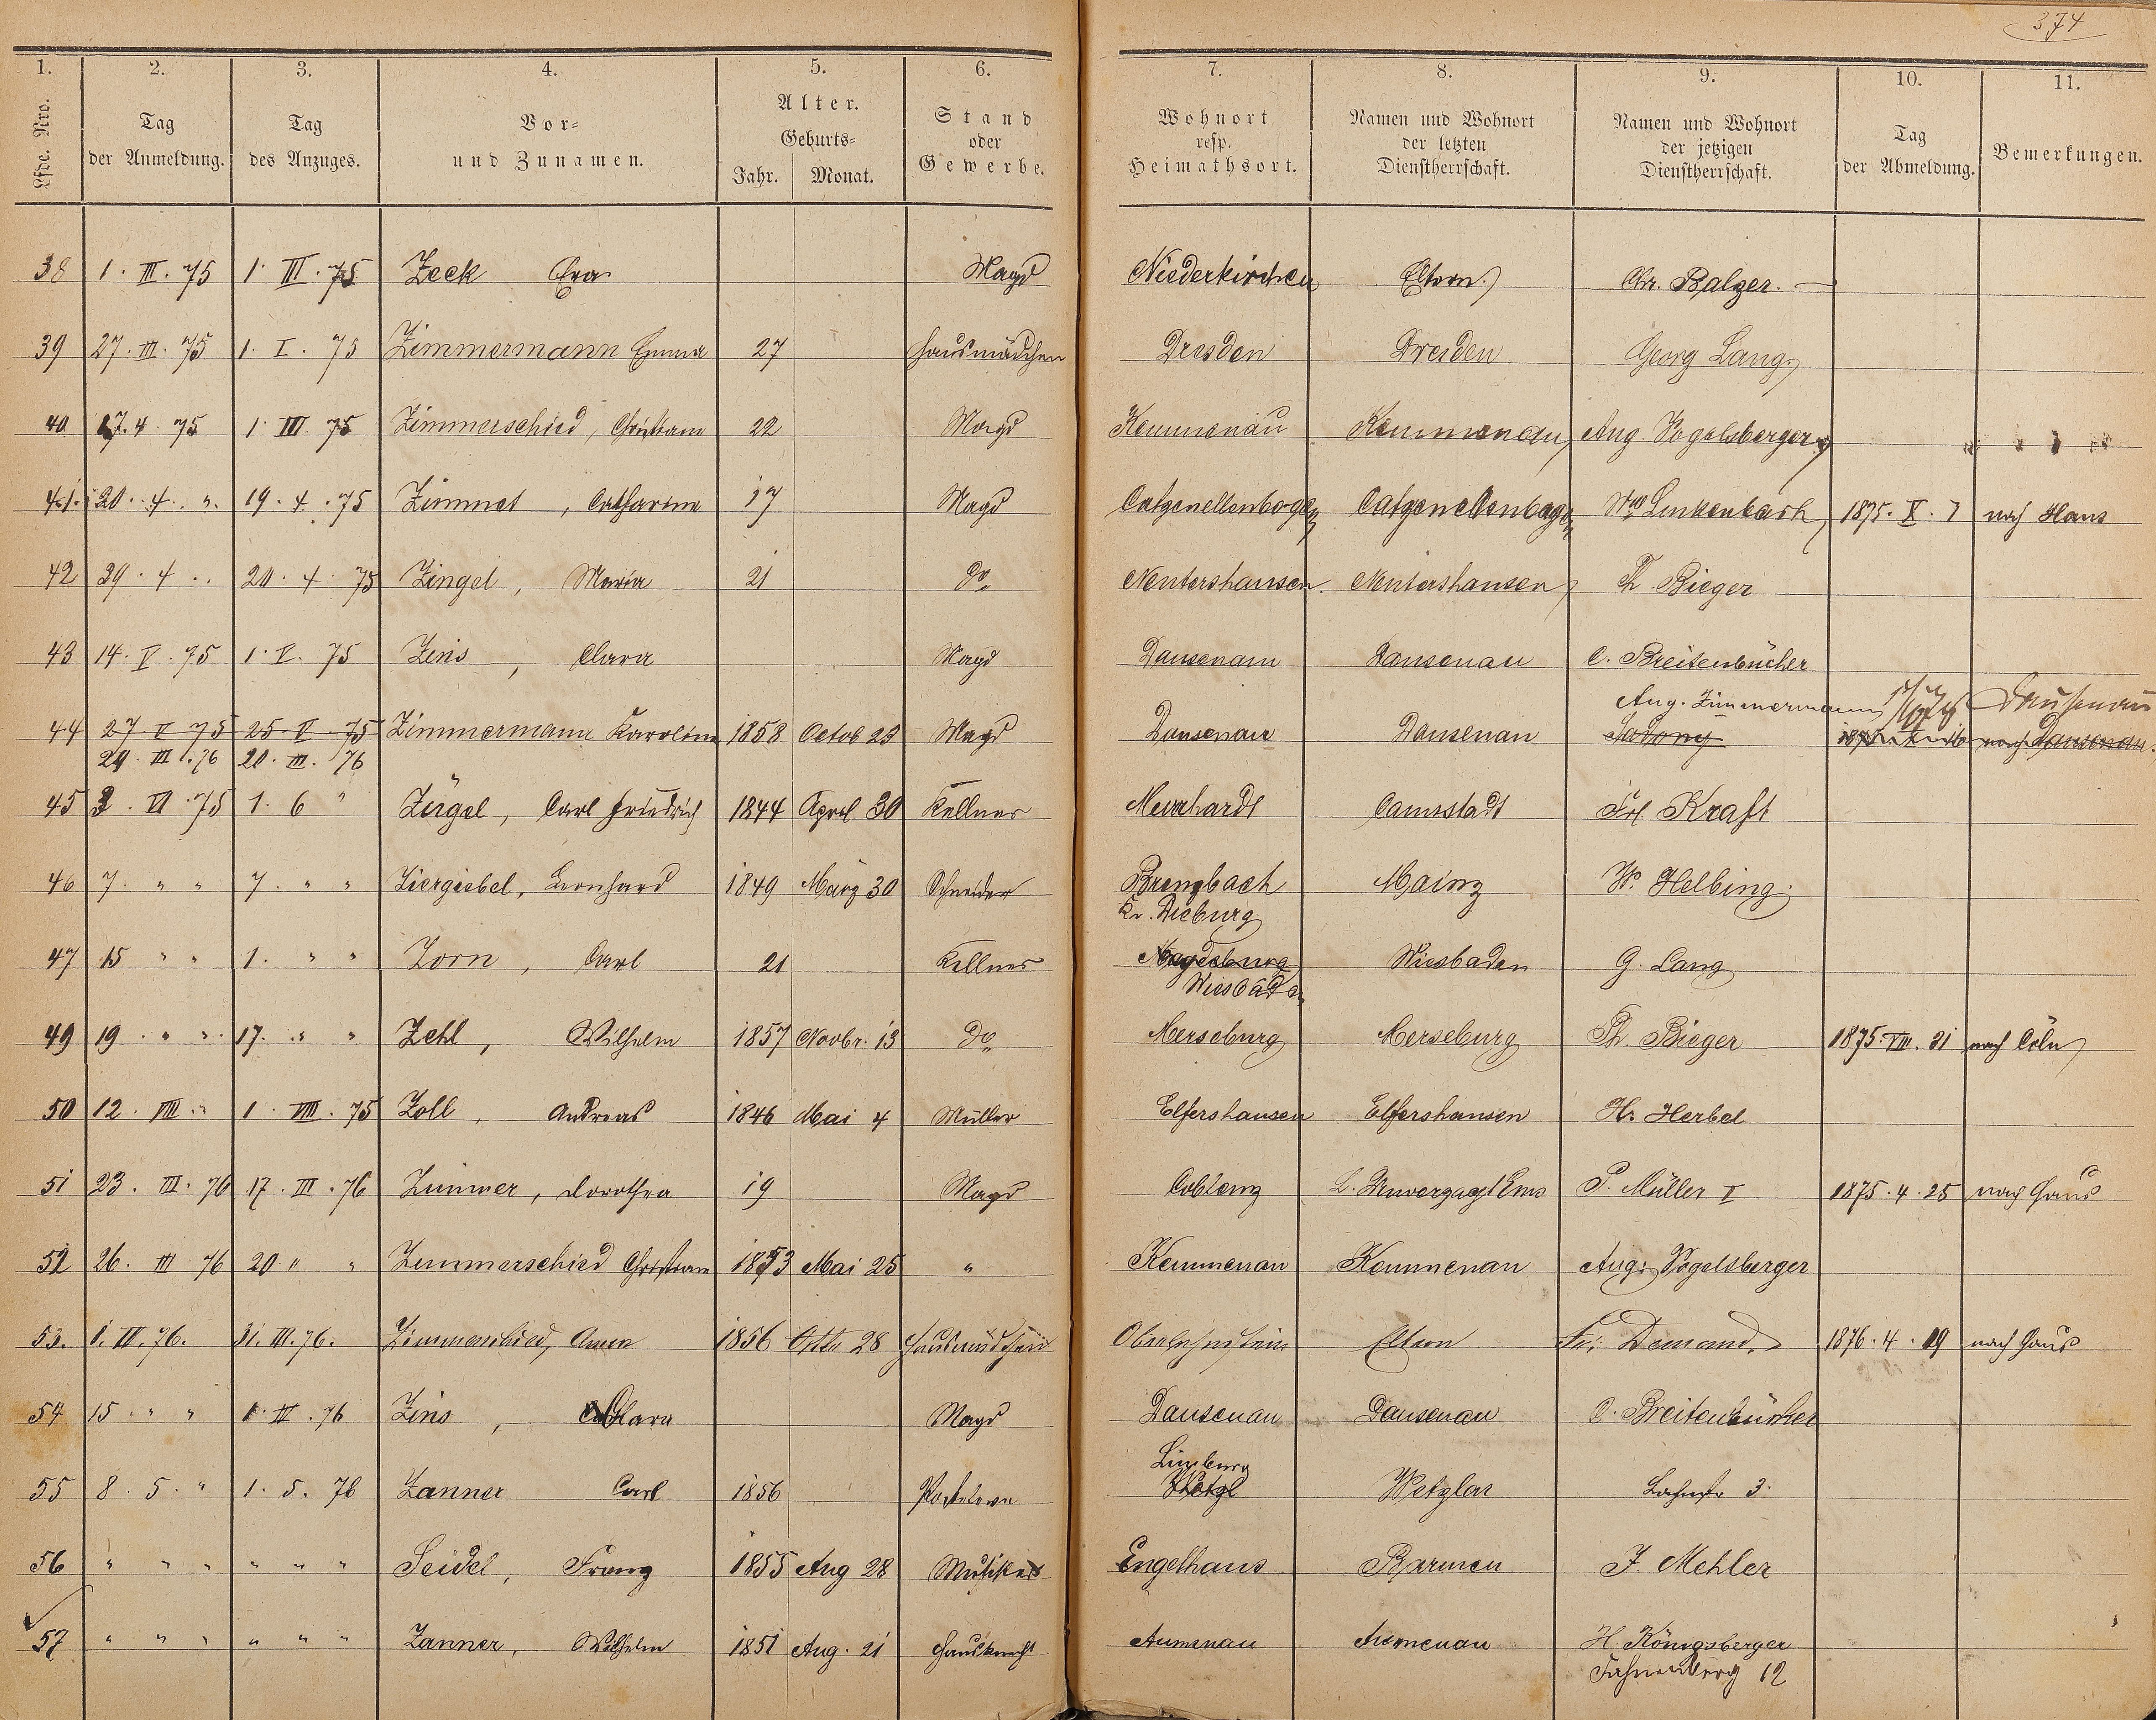 374
1. 2. 3. 4. 5. 6. 7. 8. 9. 10. 11.
Lfde. Nro.
Tag der Anmeldung.
Tag des Anzuges.
Vor- und Zunamen.
Alter. Geburts- Jahr. Monat.
Stand oder Gewerbe.
Wohnort resp. Heimathsort.
Namen und Wohnort der letzten Dienstherrschaft.
Namen und Wohnort der jetzigen Dienstherrschaft.
Tag der Abmeldung.
Bemerkungen.
38 1. III. 75 1. III. 75 Zeck Eva Magd Niederkirchen Eltern Chr. Balzer. —
39 27. III. 75 1. I. 75 Zimmermann Emma 27 Hausmädchen Dresden Dresden Georg Lang
40 17. 4. 75 1. III 75 Zimmerschied, Christiane 22 Magd Kemmenau Kemmenau Aug. Vogelsberger
41. 20. 4. " 19. 4. 75 Zimmet, Catharine 17 Magd Catzenellenbogen Catzenellenbogen Wwe Linkenbach 1875. X. 7 nach Haus
42 29. 4 .. 20. 4. 75 Zingel, Maria 21 do Nentershausen. Nentershausen Th. Bieger
43 14. V. 75 1. V. 75 Zins, Clara Magd Dausenau Dausenau C. Breitenbücher
Aug. Zimmermann Dausenau
44 27 V 75 25 V 75 Zimmermann Karoline 1858 Octob 23 Magd Dausenau Dausenau Sadony nach Dausenau.
24. III. 76 20. III. 76
45 3. VI. 75 1. 6 " Zürgel, Carl Friedrich 1844 April 30 Kellner Murrhardt Cannstadt Frl Kraft
46 7. " " 7. " " Ziergiebel, Leonhard 1849 März 30 Schneider Brensbach Mainz W. Helbing
Kr. Dieburg
47 15 " " 1. " " Zorn, Carl 21 Kellner Magdeburg Wiesbaden G. Lang
Wiesbaden
49 19. " " 17. " " Zehl, Wilhelm 1857 Novbr. 13 do Merseburg Merseburg Th. Bieger 1875. VIII. 21 nach Cöln
50 12. VIII. " 1. VIII. 75 Zoll, Andreas 1846 Mai 4 Müller Elfershausen Elfershausen H. Herbel
51 23. III. 76 17. III. 76 Zimmer, Dorothea 19 Magd Coblenz L. Unverzagt Ems P. Müller I 1875. 4. 25 nach Haus
52 26. III 76 20 " " Zimmerschied Christiane 1853 Mai 25 " Kemmenau Kemmenau Aug. Vogelsberger
53. 1. IV. 76. 31. III. 76. Zimmerschied, Anna 1856 Octbr 28 Hausmädchen Oberlahnstein Eltern Fr. Demand. 1876. 4. 19 nach Haus
54 15. " " 1. IV. 76 Zins, Clara Magd Dausenau Dausenau C. Breitenbücher
Limburg
55 8. 5. " 1. 5. 76 Zanner Carl 1856 Wetzl Wetzlar Lahnstr 3.
56 " " " " " " Seidel, Franz 1855 Aug 28 Musiker Engelhaus Barmen J. Mehler
57 " " " " " " Zanner, Wilhelm 1851 Aug. 21 Hausknecht Aumenau Aumenau H. Königsberger
12